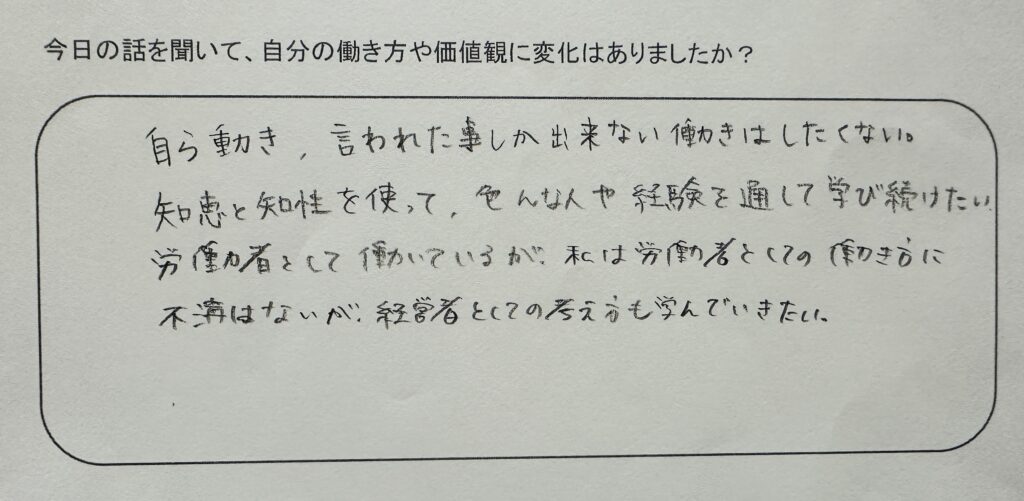 今日の話を聞いて、自分の働き方や価値観に変化はありましたか？
自ら動き、言われた事しか出来ない働きはしたくない。
知恵と知性を使って、色んな人や経験を通して学び続けたい。
労働者として働いているが、私は労働者としての働き方に
不満はないが、経営者としての考え方も学んでいきたい。